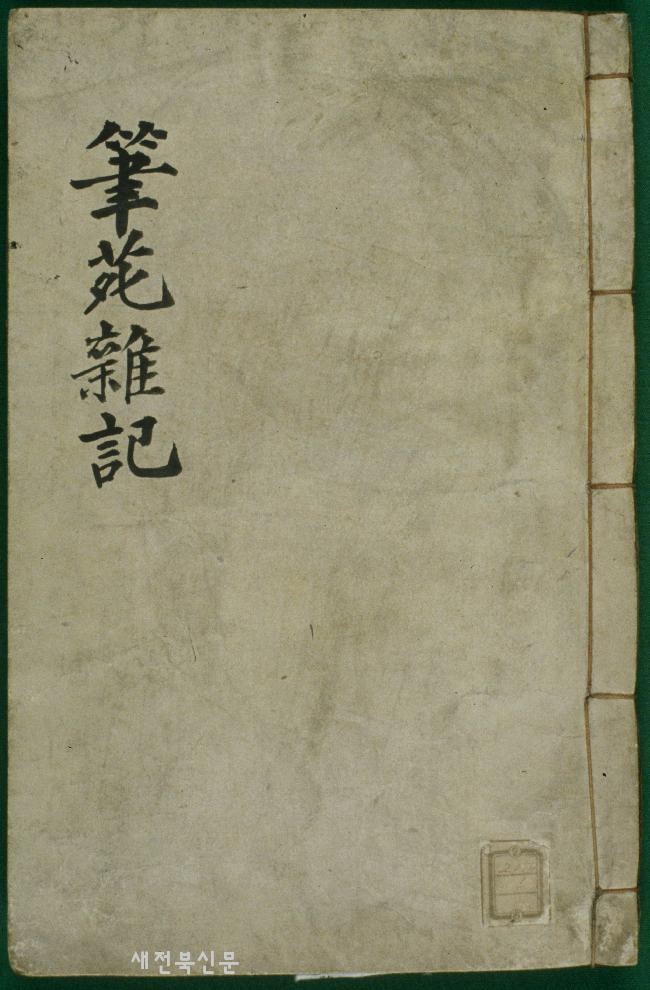 筆苑雜記
새전북신문